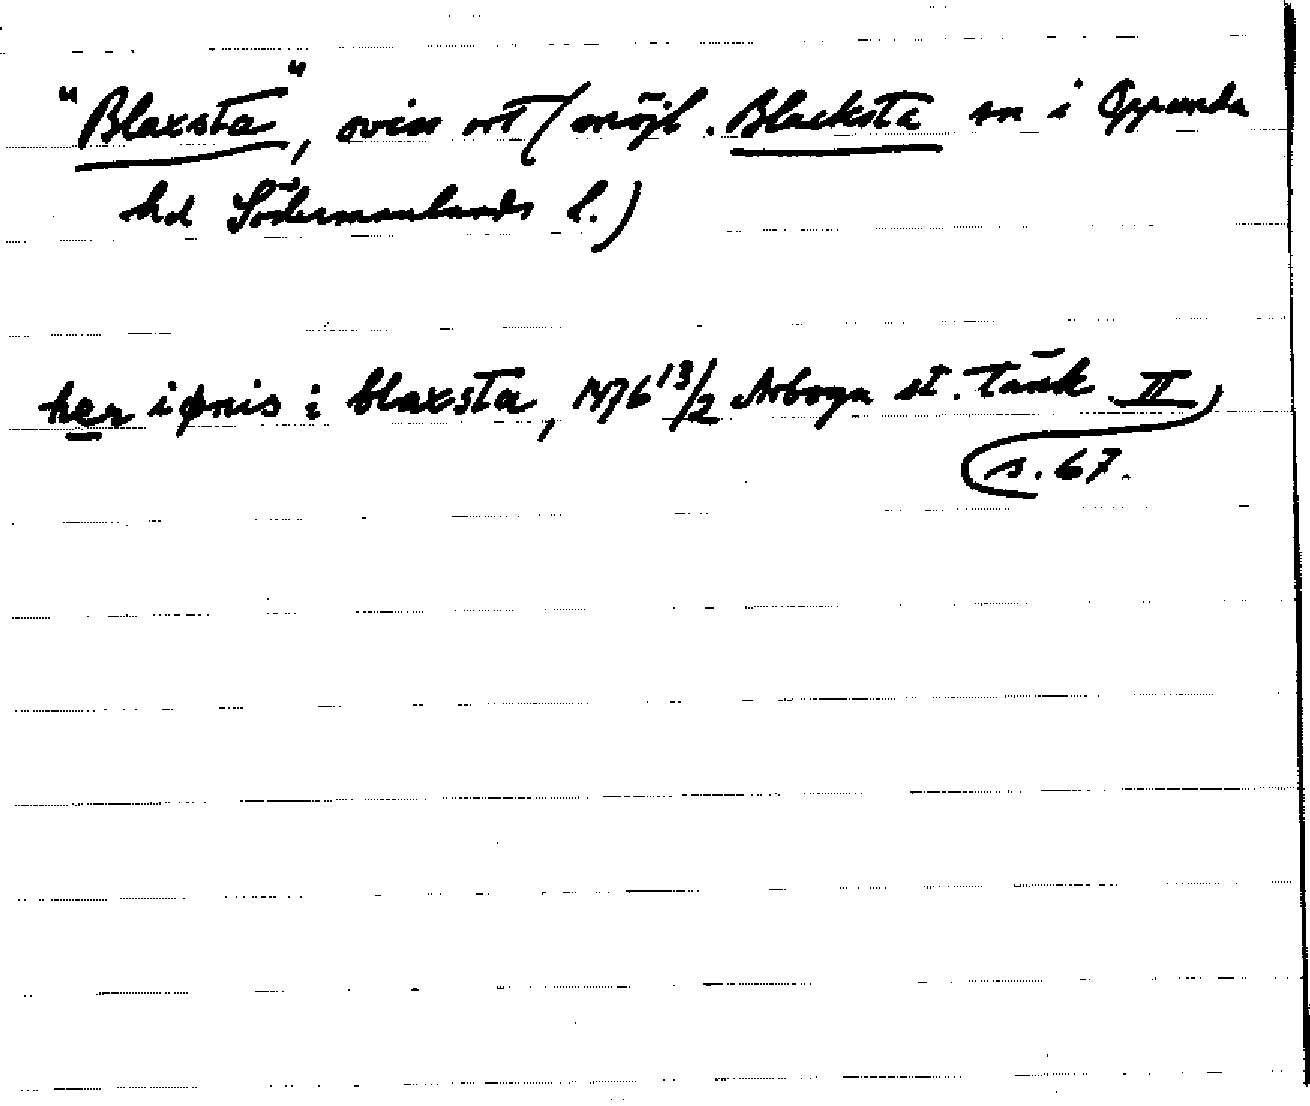 "Blaxsta", oviss ort (möjl. Blacksta sn i Oppunda
hd Södermanlands l.)
her iønis i blaxsta, 1476 13/2 Arboga st. tänk. II
s. 67.